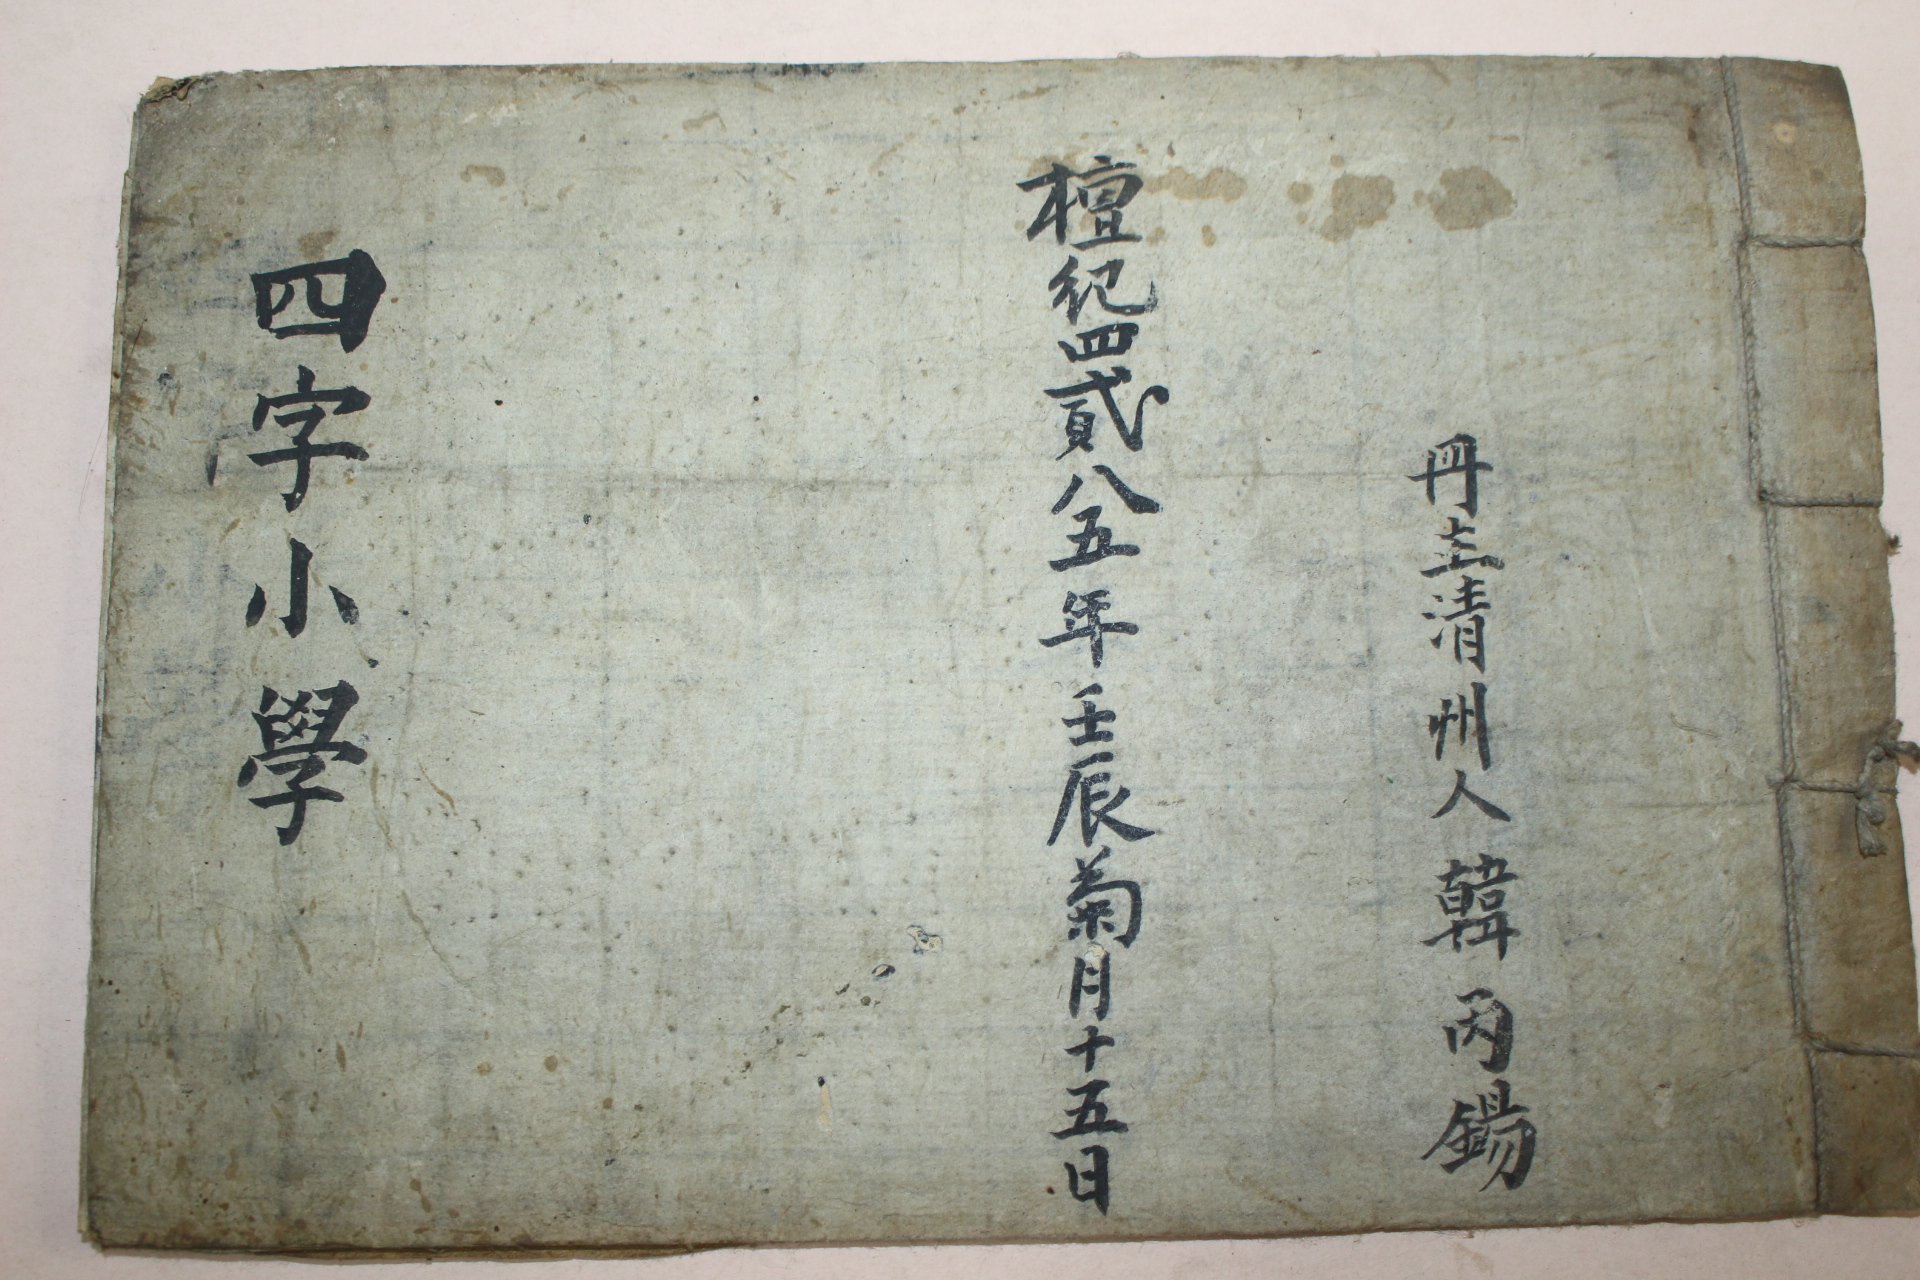 冊主清州人韓丙錫
檀紀四貳八五年壬辰菊月十五日
四字小學